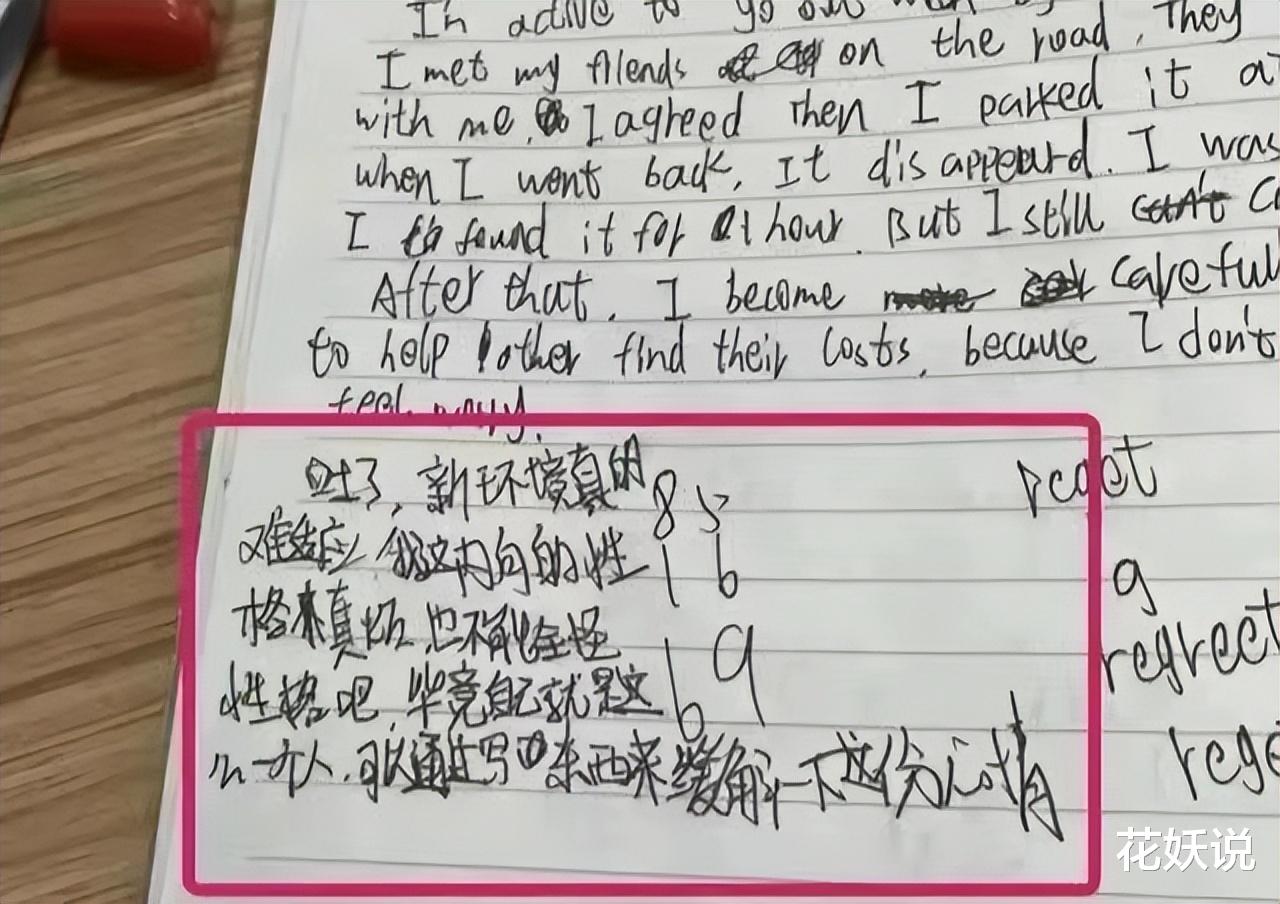 In active to go out
I met my filends on the road, They
with me, I agreed Then I parked it
when I went back, It disappeard. I was
I found it for 1 hour. But I still can't
After that, I become more careful
to help other find their losts, because I don't
feel
吐了，新环境真的
难适应 我这内向的性
格来真坏，也不能全怪
性格吧，毕竟自己就是这
么一个人，可以通过写东西来缓解一下这份心情
85
16
69
reget
g
regrect
rege
花妖说